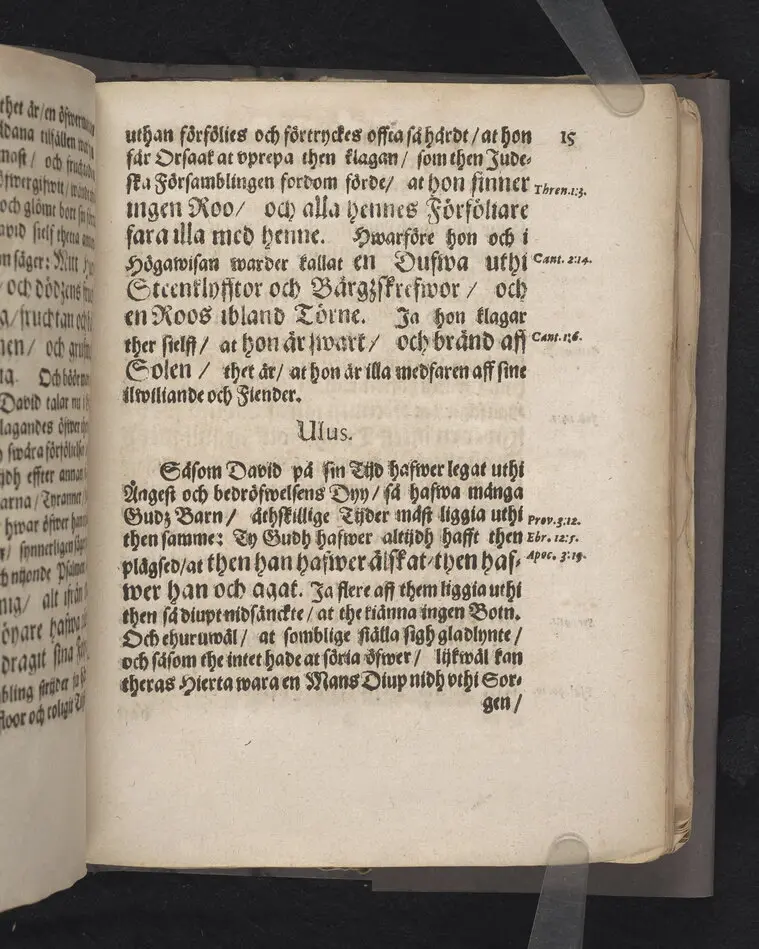 thet är/ en öfwer
ldana tilfällen
mast/ och
öfwergifwit/
och glömt bort
avid sielf thetta
n säger: Mitt
och dödzens
a/ fruchtan och
nen/ och
ig. Och
David talar nu
lagandes öfwer
swåra
ijdh effter annan
arna/ Tyranner
hwar öfwer
synnerligen
nijonde Psalmen
nig/ alt ifrån
önare hafwa
dragit sina
bling strijder
floor och
uthan förfölies och förtryckes offta så hårdt/ at hon 15
får Orsaak at vprepa then klagan/ som then Jude-
ska Församblingen fordom förde/ at hon finner Thren.1:3.
ingen Roo/ och alla hennes Förföliare
fara illa med henne. Hwarföre hon och i
Högawisan warder kallat en Dufwa uthi Cant. 2:14.
Steenklyfftor och Bärgzskrefwor/ och
en Roos ibland Törne. Ja hon klagar
ther sielff/ at hon är swart/ och bränd aff Cant.1:6.
Solen/ thet är/ at hon är illa medfaren aff sine
ilwiliande och Fiender.
Usus.
Såsom David på sin Tijd hafwer legat uthi
Ångest och bedröfwelsens Dyy/ så hafwa många
Gudz Barn/ åthskillige Tijder måst liggia uthi Prov.3:12.
then samme: Ty Gudh hafwer altijdh hafft then Ebr. 12:5.
plägsed/ at then han hafwer älskat/ then haf- Apoc. 3:19.
wer han och agat. Ja flere aff them liggia uthi
then så diupt nidsänckte/ at the kiänna ingen Botn.
Och ehuruwäl/ at somblige ställa sigh gladlynte/
och såsom the intet hade at söria öfwer/ lijkwäl kan
theras Hierta wara en Mans Diup nidh vthi Sor-
gen/